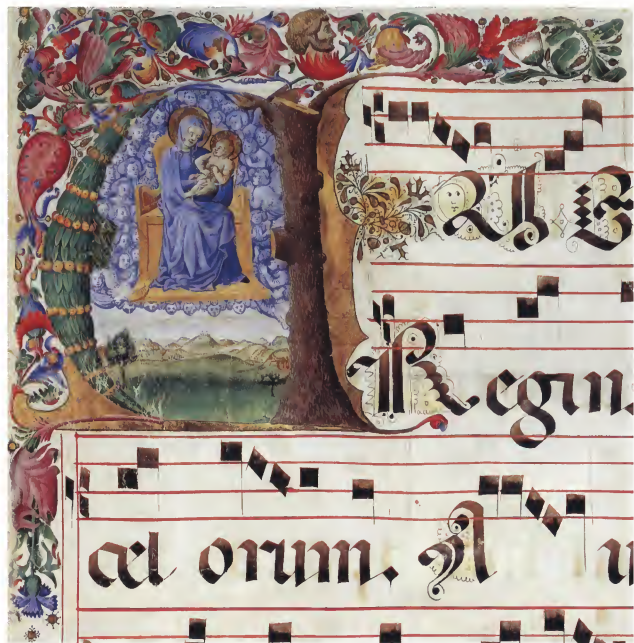 AVE
Regin
cel orum. A u